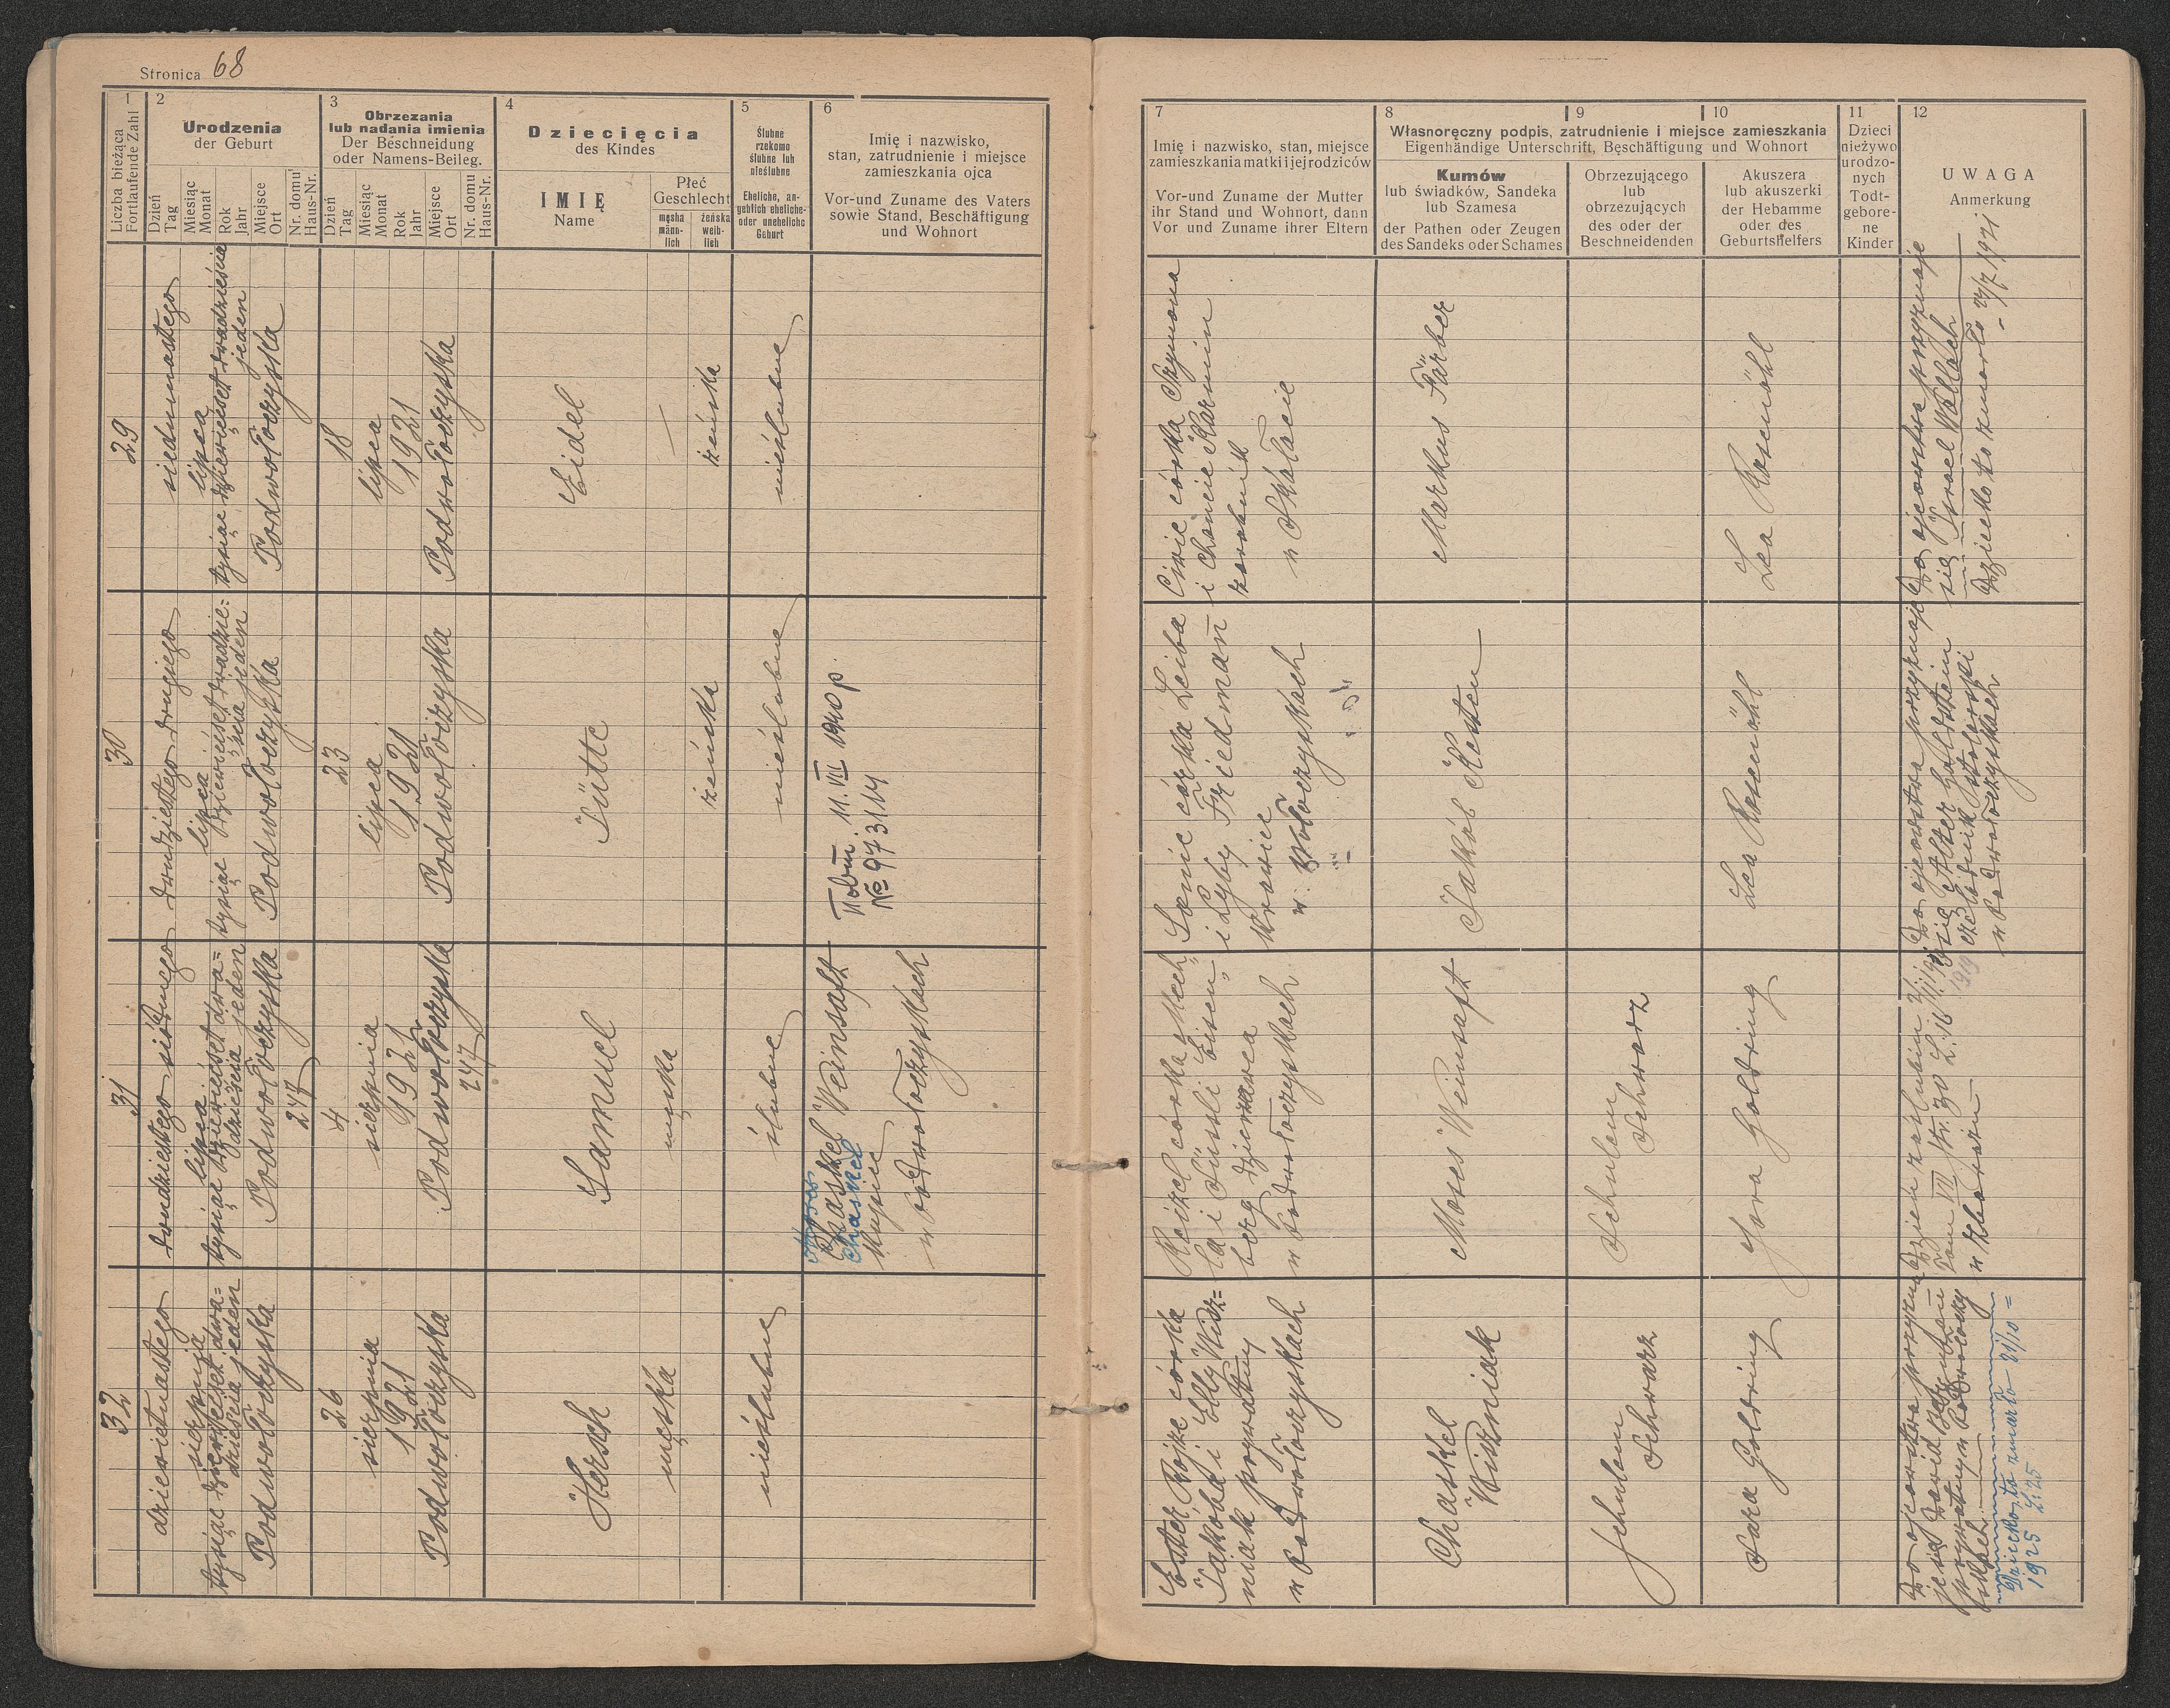 Stronica 68
1
Liczba bieżąca
Fortlaufende Zahl
2
Urodzenia
der Geburt
Dzień
Tag
Miesiąc
Monat
Rok
Jahr
Miejsce
Ort
Nr. domu
Haus-Nr.
3
Obrzezania
lub nadania imienia
Der Beschneidung
oder Namens-Beileg.
Dzień
Tag
Miesiąc
Monat
Rok
Jahr
Miejsce
Ort
Nr. domu
Haus-Nr.
4
Dziecięcia
des Kindes
IMIĘ
Name
Płeć
Geschlecht
męska
männ-
lich
żeńska
weib-
lich
5
Ślubne
rzekomo
ślubne lub
nieślubne
Eheliche, an-
geblich eheliche-
oder uneheliche
Geburt
6
Imię i nazwisko,
stan, zatrudnienie i miejsce
zamieszkania ojca
Vor-und Zuname des Vaters
sowie Stand, Beschäftigung
und Wohnort
7
Imię i nazwisko, stan, miejsce
zamieszkania matki i jej rodziców
Vor-und Zuname der Mutter
ihr Stand und Wohnort, dann
Vor und Zuname ihrer Eltern
8
9
10
Własnoręczny podpis, zatrudnienie i miejsce zamieszkania
Eigenhändige Unterschrift, Beschäftigung und Wohnort
Kumów
lub świadków, Sandeka
lub Szamesa
der Pathen oder Zeugen
des Sandeks oder Schames
Obrzezującego
lub
obrzezujących
des oder der
Beschneidenden
Akuszera
lub akuszerki
der Hebamme
oder des
Geburtshelfers
11
Dzieci
nieżywo
urodzo-
nych
Todt-
gebore-
ne
Kinder
12
UWAGA
Anmerkung
29
siedmnastego
lipca
tysiąc dziewięćset dwadzieścia
jeden
Podwołoczyska
18
lipca
1921
Podwołoczyska
Eidel
—
żeńska
nieślubne
Cirie córka Szymona
i Chancie Karmin
zarobnik
w Skałacie
Markus Färber
Lea Rosenöhl
Do ojcowstwa przyznaje
się Israel Wallach
Dziecko to zmarło 24/7 1921
30
dwudziestego drugiego
lipca
tysiąc dziewięćset dwadzie=
ścia jeden
Podwołoczyska
23
lipca
1921
Podwołoczyska
Jütte
żeńska
nieślubne
11. VII 1940 р.
№ 973144
Sonie córka Leiba
i Lyby Friedman
krawiec
w Wołoczyskach
Jakób Kesten
Lea Rosenöhl
Do ojcowstwa przyznaje
się Alter Goldstein
czeladnik stolarski
w Podwołoczyskach
31
dwudziestego siódmego
lipca
tysiąc dziewięćset dwa=
dzieścia jeden
Podwołoczyska
247
4
sierpnia
1921
Podwołoczyska
247
Samuel
męska
ślubne
Chaskel Weinsaft
Chaskel
kupiec
w Podwołoczyskach
Reizel córka Mech„
la i Süssli Eisen„
berg dzierżawca
w Podwołoczyskach
Moses Weinsaft
Schulem
Schwarz
Sara Goldring
Dzień zaślubin
Tom VII str. 30 L: 16
w Zbarażu
32
dziewiętnastego
sierpnia
tysiąc dziewięćset dwa=
dzieścia jeden
Podwołoczyska
26
sierpnia
1921
Podwołoczyska
Hersch
męska
nieślubne
Ester Roize córka
Jakóba i Elly Wisz=
niak prywatny
w Podwołoczyskach
Chaskel
Wiszniak
Schulem
Schwarz
Sara Goldring
Do ojcowstwa przyzna
je się Dawid
prywatny w Podwołoczy
skach
Dziecko to zmarło 21/10 =
1925 L: 25